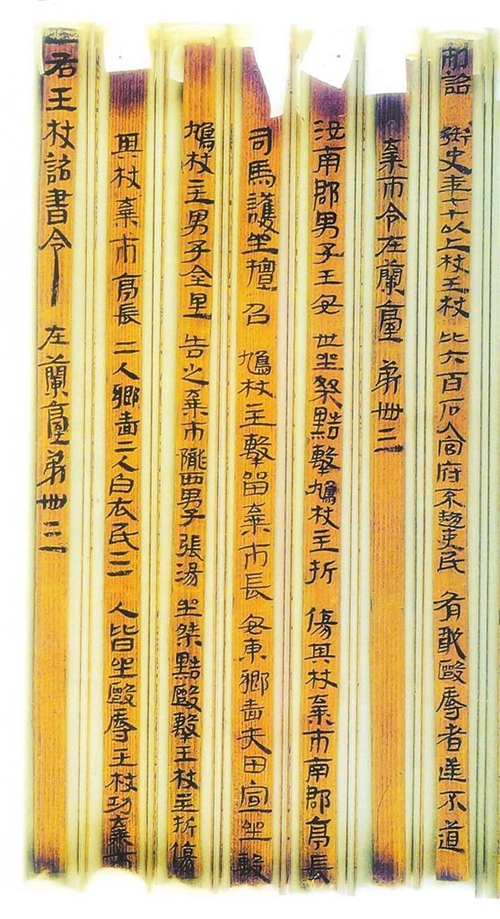 制詔 御史年七十以上杖王杖 比六百石入官府不趨吏民 有敢毆辱者逆不道
棄市令在蘭臺 弟卌三
汝南郡男子王安 世坐桀黠擊鳩杖主折 傷其杖棄市南郡亭長
司馬護坐擅召 鳩杖主擊留棄市長 安東鄉嗇夫田宣坐毄
鳩杖主男子金里 告之棄市隴西男子張湯 坐桀黠毆擊王杖主折傷
其杖棄市亭長 二人鄉嗇二人白衣民三 人皆坐毆辱王杖功棄市
右王杖詔書令 在蘭臺弟卌三